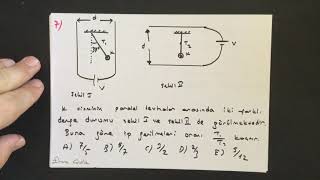 7)
d
T₁
K
V
Şekil I
d
T₂
K
V
Şekil II
K cisminin paralel levhalar arasında iki farklı
denge durumu şekil I ve şekil II de görülmektedir.
Buna göre ip gerilmeleri oranı T₁/T₂ kaçtır.
A) 7/5 B) 8/7 C) 5/2 D) 2/3 E) 5/12